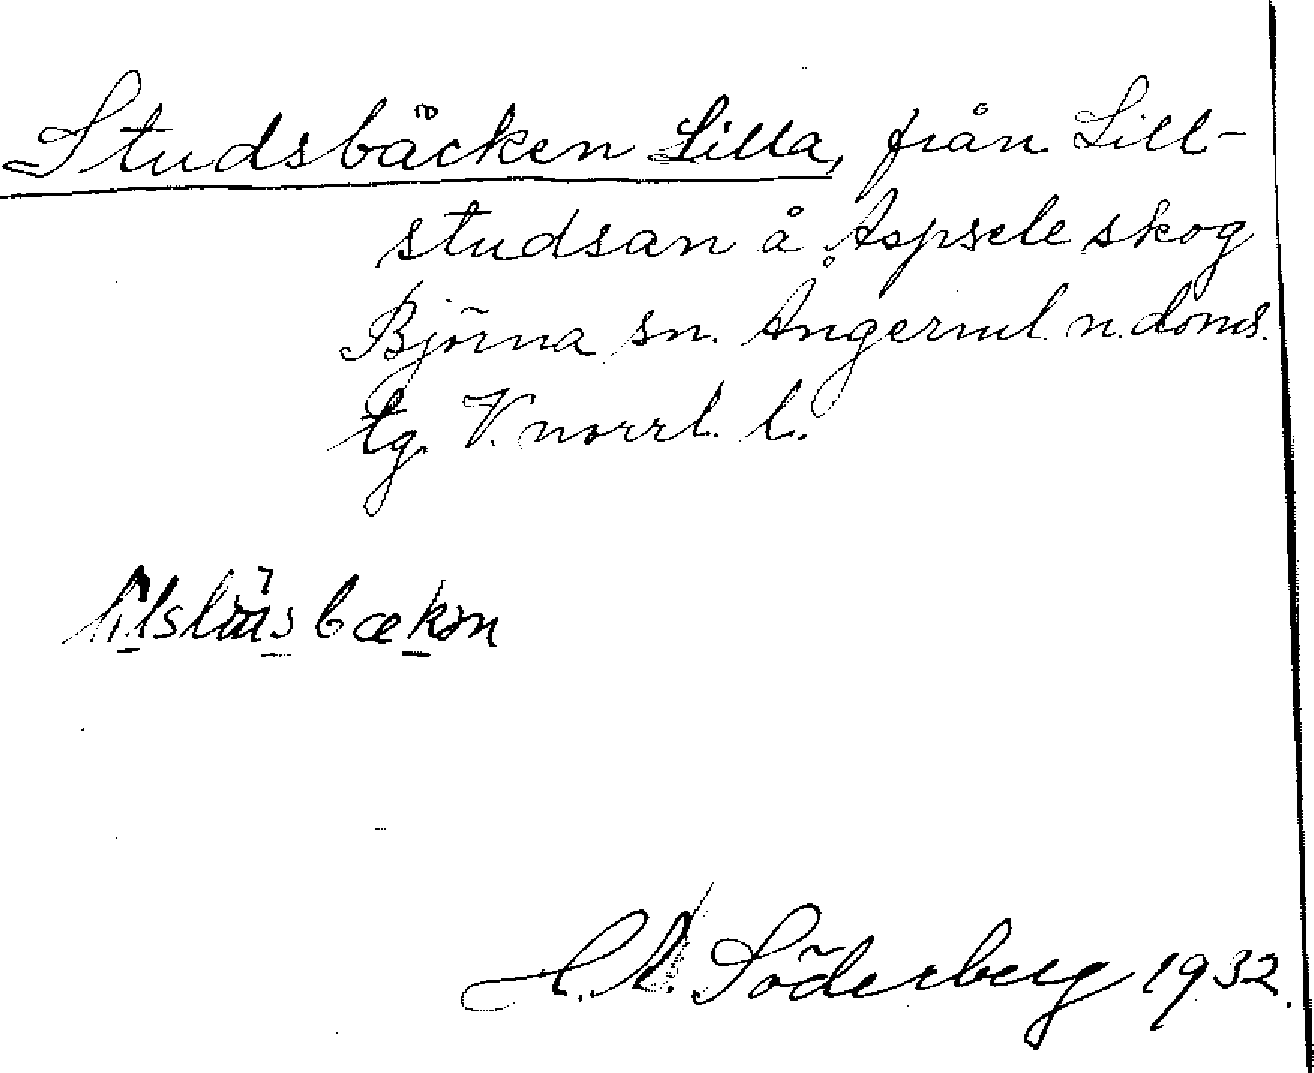 Studsbäcken Lilla, från Lill-
studsan å Aspsele skog
Björna sn. Ångerml. n. doms.
tg. V. norrl. l.
Söderberg 1932.